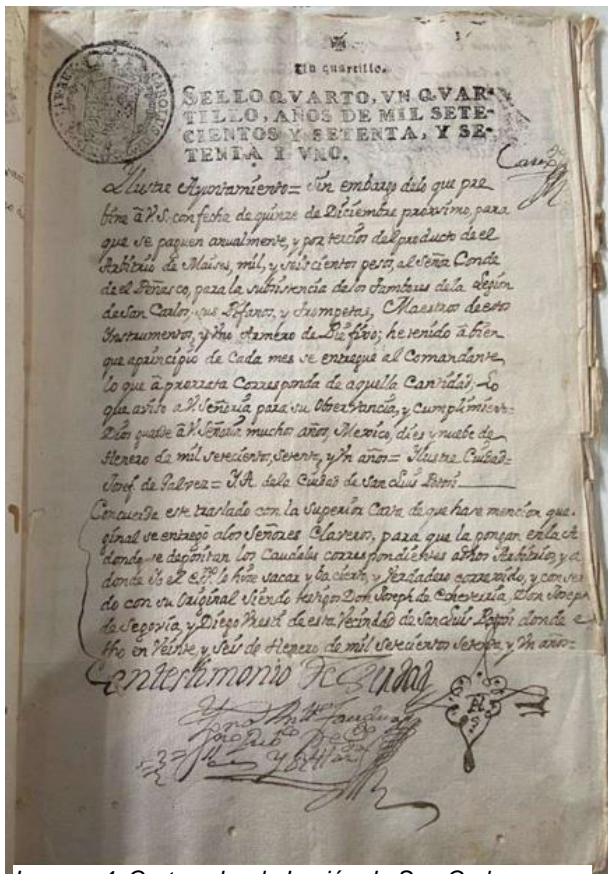 Un quartillo.
SELLO QVARTO, VN QVAR-
TILLO, AÑOS DE MIL SETE-
CIENTOS Y SETENTA, Y SE-
TENTA Y VNO.
Illustre Ayuntamiento= Sin embargo delo que pre
bine â V.S. con fecha de quinze de Diciembre proximo, para
que se paguen anualmente, y por tercios del producto de el
Arbitrio de Maises, mil, y seiscientos pesos, al Señor Conde
de el Peñasco, para la subsistencia de los Tambores dela Legion
de San Carlos, sus Pifanos, y Trompetas, Maestros de estos
Ynstrumentos, y Vno Armero de Pie fixo; he tenido â bien
que aprincipio de Cada mes se entregue al Comandante,
lo que â prorrata Corresponda de aquella Cantidad; Lo
que aviso a V. Señoria para su Observancia, y Cumplimiento=
Dios guarde â V. Señoria muchos años, Mexico, dies y nuebe de
Henero de mil setecientos, setenta, y Vn años= Ylustre Ciudad=
Josef de Galvez= Y.A. dela Ciudad de San Luis Potosi
Concuerda este traslado con la Superior Carta de que hase mencion que ori
ginal se entregó alos Señores Claveros, para que la pongan en la
donde se depositan los Caudales correspondientes Arbitrios, y
donde Yo el lo hize sacar y ba cierto, y Verdadero corregido, y
do con su Original Siendo testigos Don Joseph de Echeverria, Don Joseph
de Segovia, y Diego de esta Vecindad de San Luis Potosi donde
fho en Veinte, y Seis de Henero de mil setecientos setenta, y Vn años=
En testimonio de Verdad